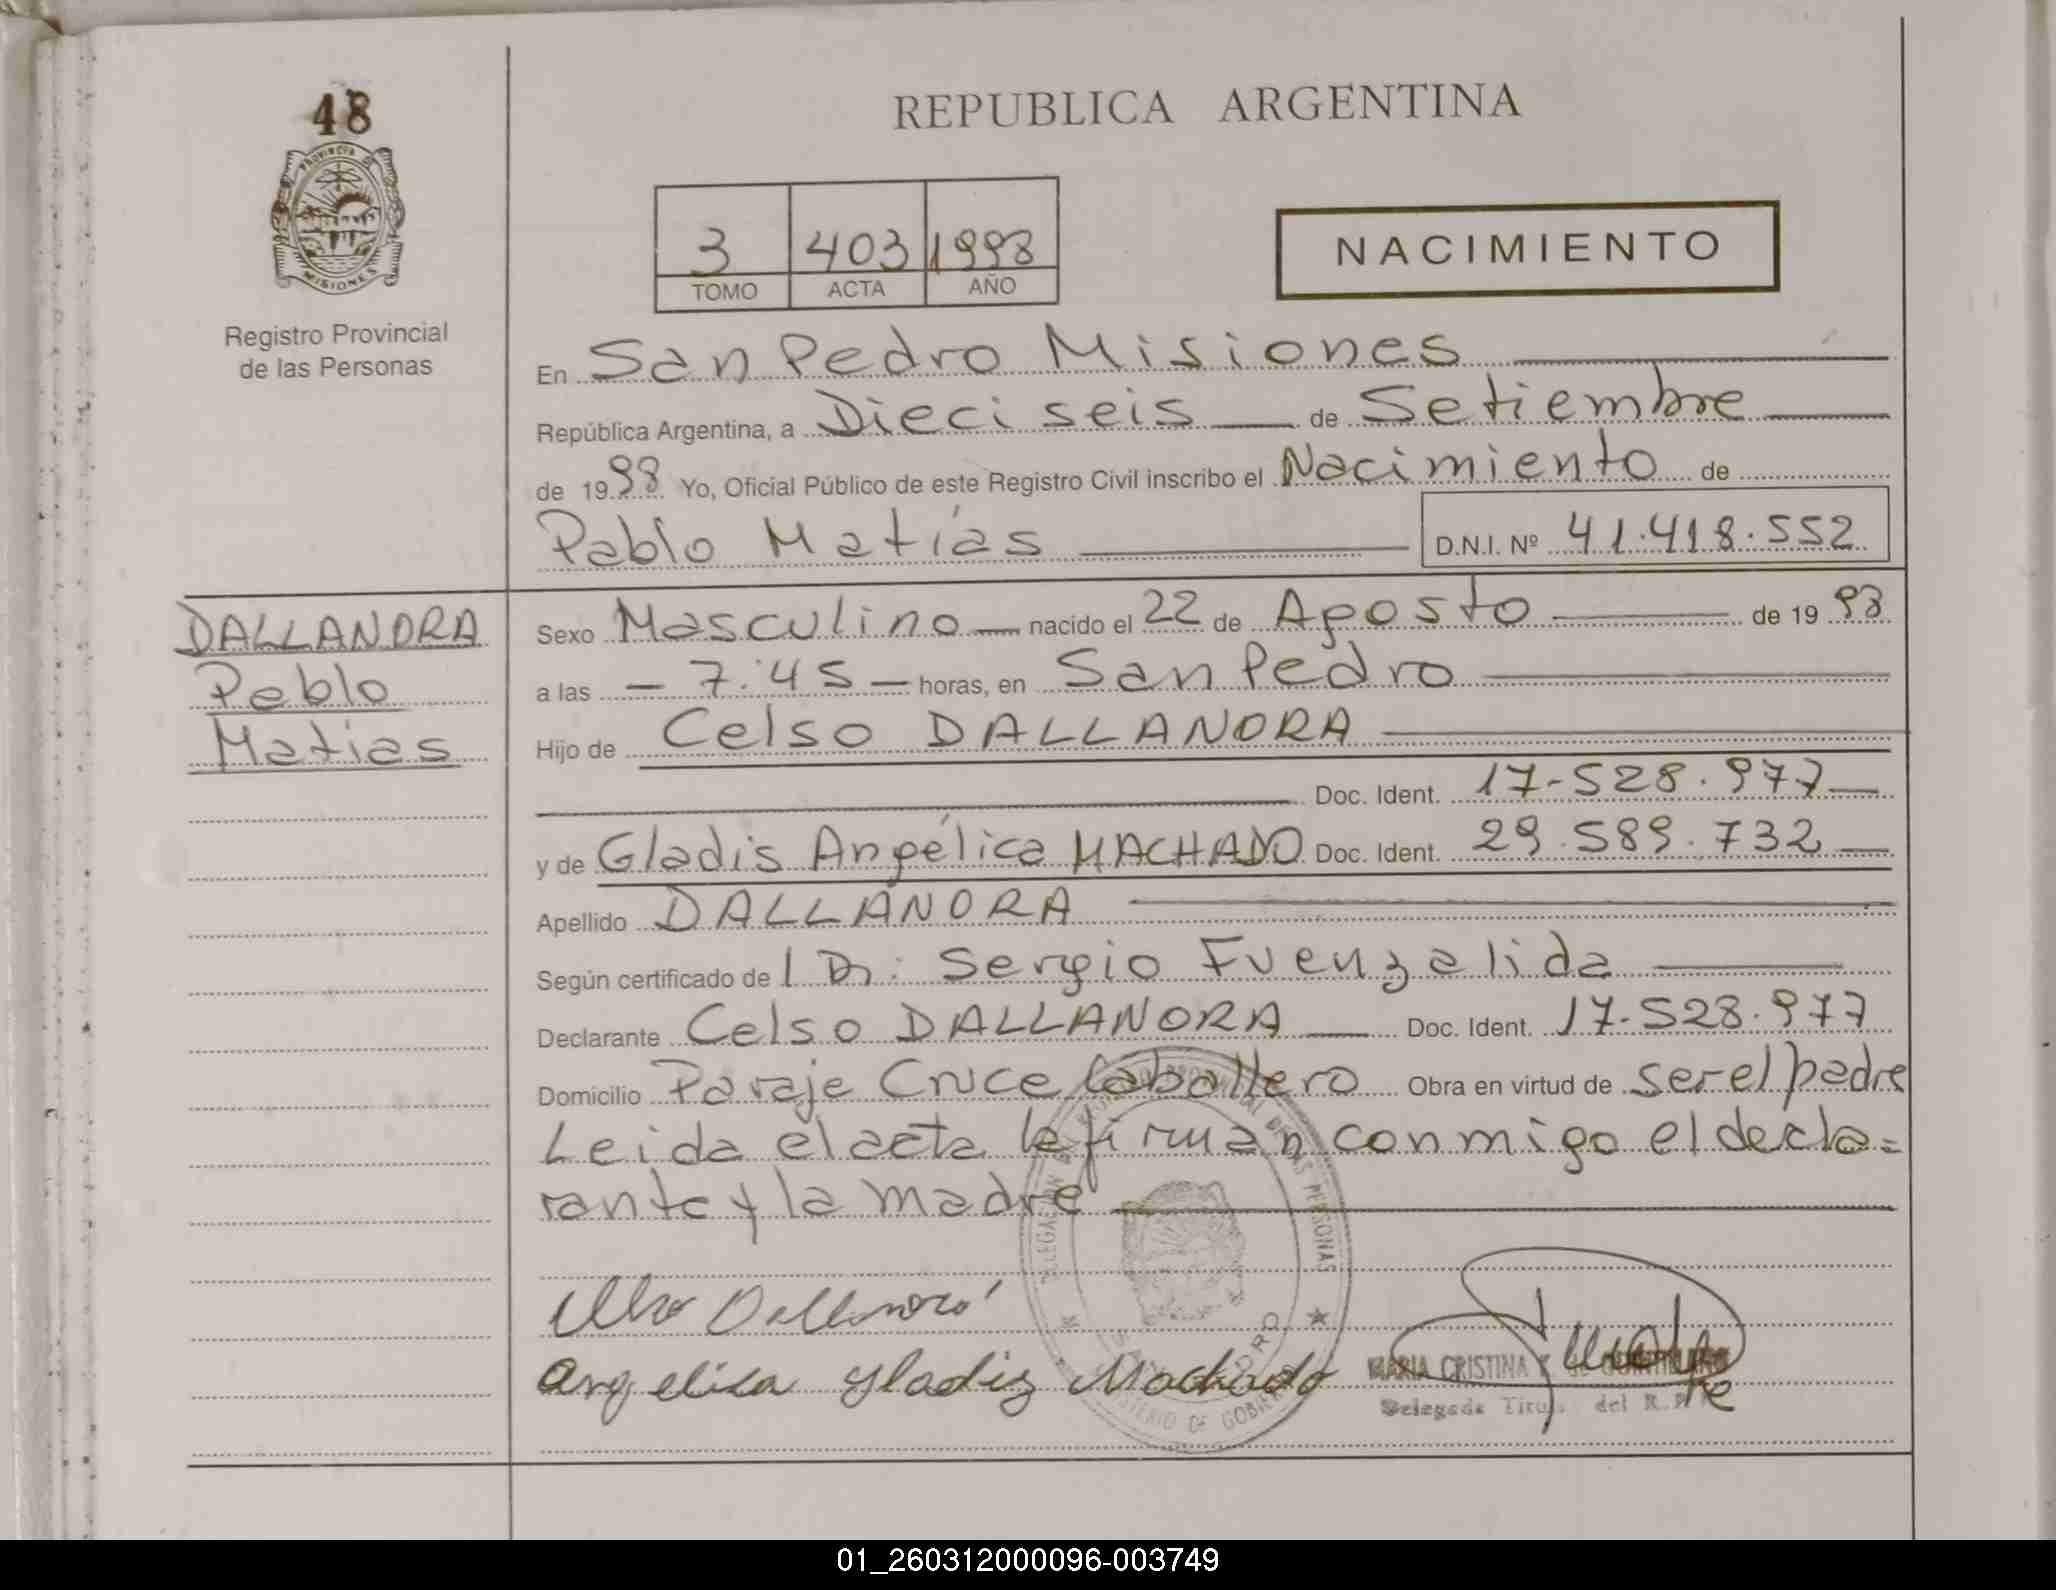 48
PROVINCIA DE
MISIONES
Registro Provincial
de las Personas
REPUBLICA ARGENTINA
3 403 1998
TOMO ACTA AÑO
NACIMIENTO
En San Pedro Misiones
República Argentina, a Dieciseis de Setiembre
de 1998 Yo, Oficial Público de este Registro Civil inscribo el Nacimiento de
Pablo Matías D.N.I. Nº 41.418.552
DALLANDRA
Pablo
Matias
Sexo Masculino nacido el 22 de Agosto de 1998
a las - 7:45 - horas, en San Pedro
Hijo de Celso DALLANORA
Doc. Ident. 17-528.977
y de Gladis Angélica MACHADO Doc. Ident. 29.589.732
Apellido DALLANORA
Según certificado de l Dr: Sergio Fuenzalida
Declarante Celso DALLANORA Doc. Ident. 17.528.977
Domicilio Paraje Cruce Caballero Obra en virtud de ser el padre
Leida el acta la firman conmigo el decla=
rante y la madre
DELEGACION REGISTRO PROVINCIAL DE LAS PERSONAS
SAN PEDRO
MINISTERIO DE GOBIERNO
Dallanora
Angelica Gladis Machado
MARIA CRISTINA
Delegada Titul. del R.P.
01_260312000096-003749